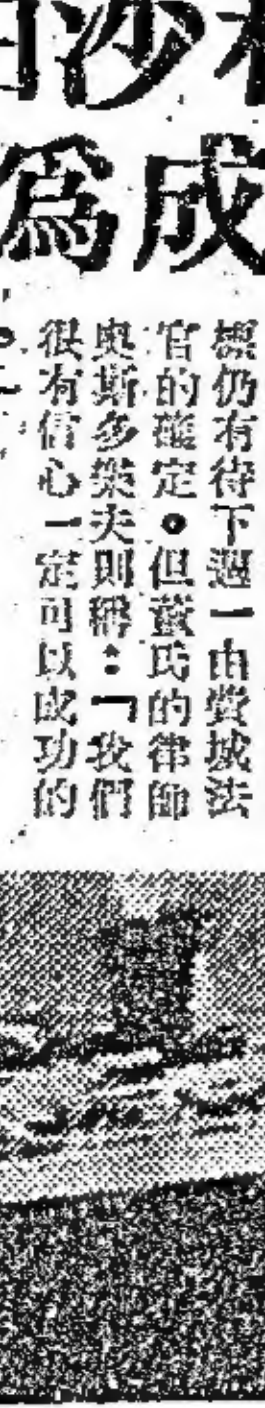 沙
成
為
標仍有待下週一由費城法
官的確定。但董氏的律師
奧斯多樂夫則稱：「我們
很有信心一定可以成功的
。」